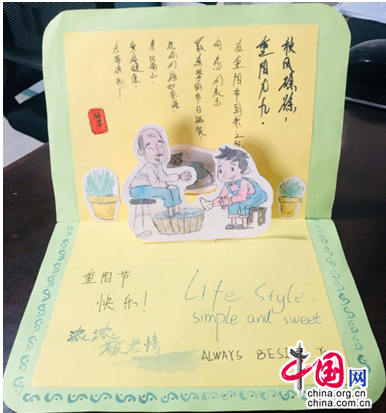 秋风飒飒,
重阳九九。
在重阳节到来之
向您们致以
最真挚的节日祝
祝您们福如东海,
寿比南山。
身体健康
重阳节
快乐!
浓浓
敬老情
Life style
simple and sweet
ALWAYS BESI Y
中国网
china.org.cn
china.com.cn